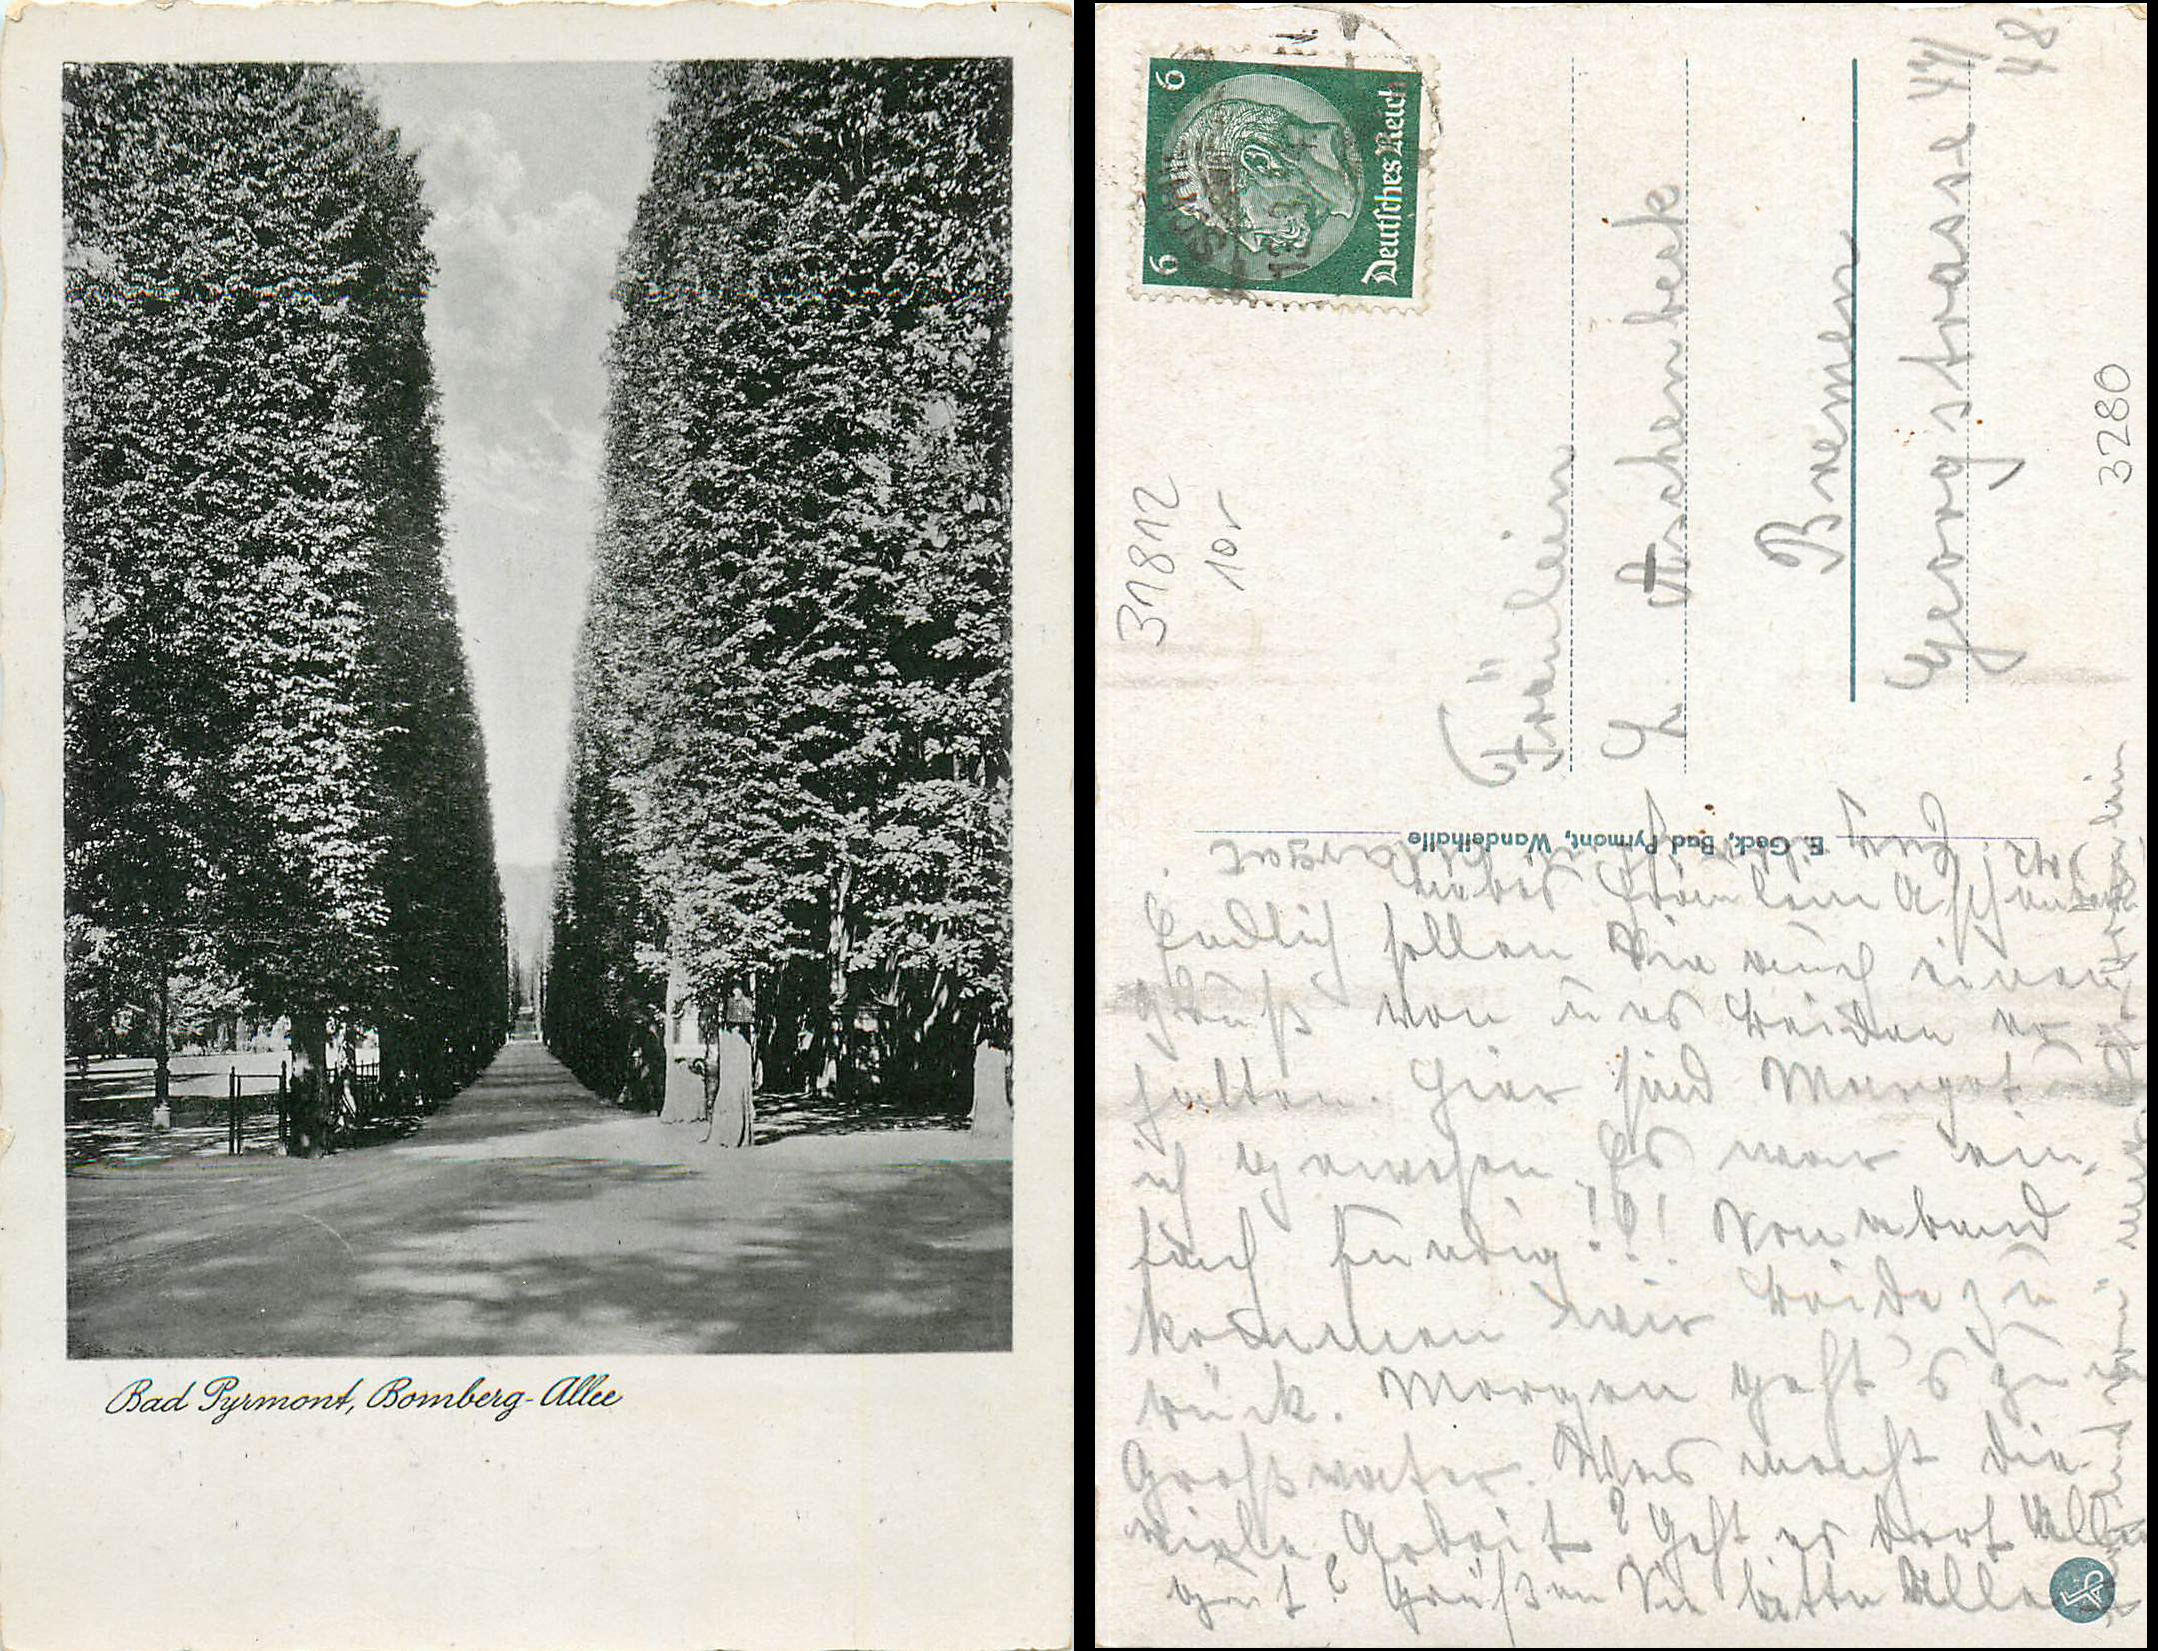 Bad Pyrmont, Bomberg-Allee
6 6
Deutsches Reich
31812
10.-
Fräulein
Aschenbeck
Bremen
Georgstrasse 47/
48
3280
E. Geck, Bad Pyrmont, Wandelhalle
Liebes Fräulein
Endlich sollen Sie auch einen
Gruß von uns beiden er-
halten. Hier sind Margot u.
ich gewesen. Es war ein-
fach !!! Sonnabend
kommen wir beide zu-
rück. Morgen geht's zum
Großvater. Was macht die
viele Arbeit? Geht es dort Allen
gut? Grüßen Sie bitte Alle